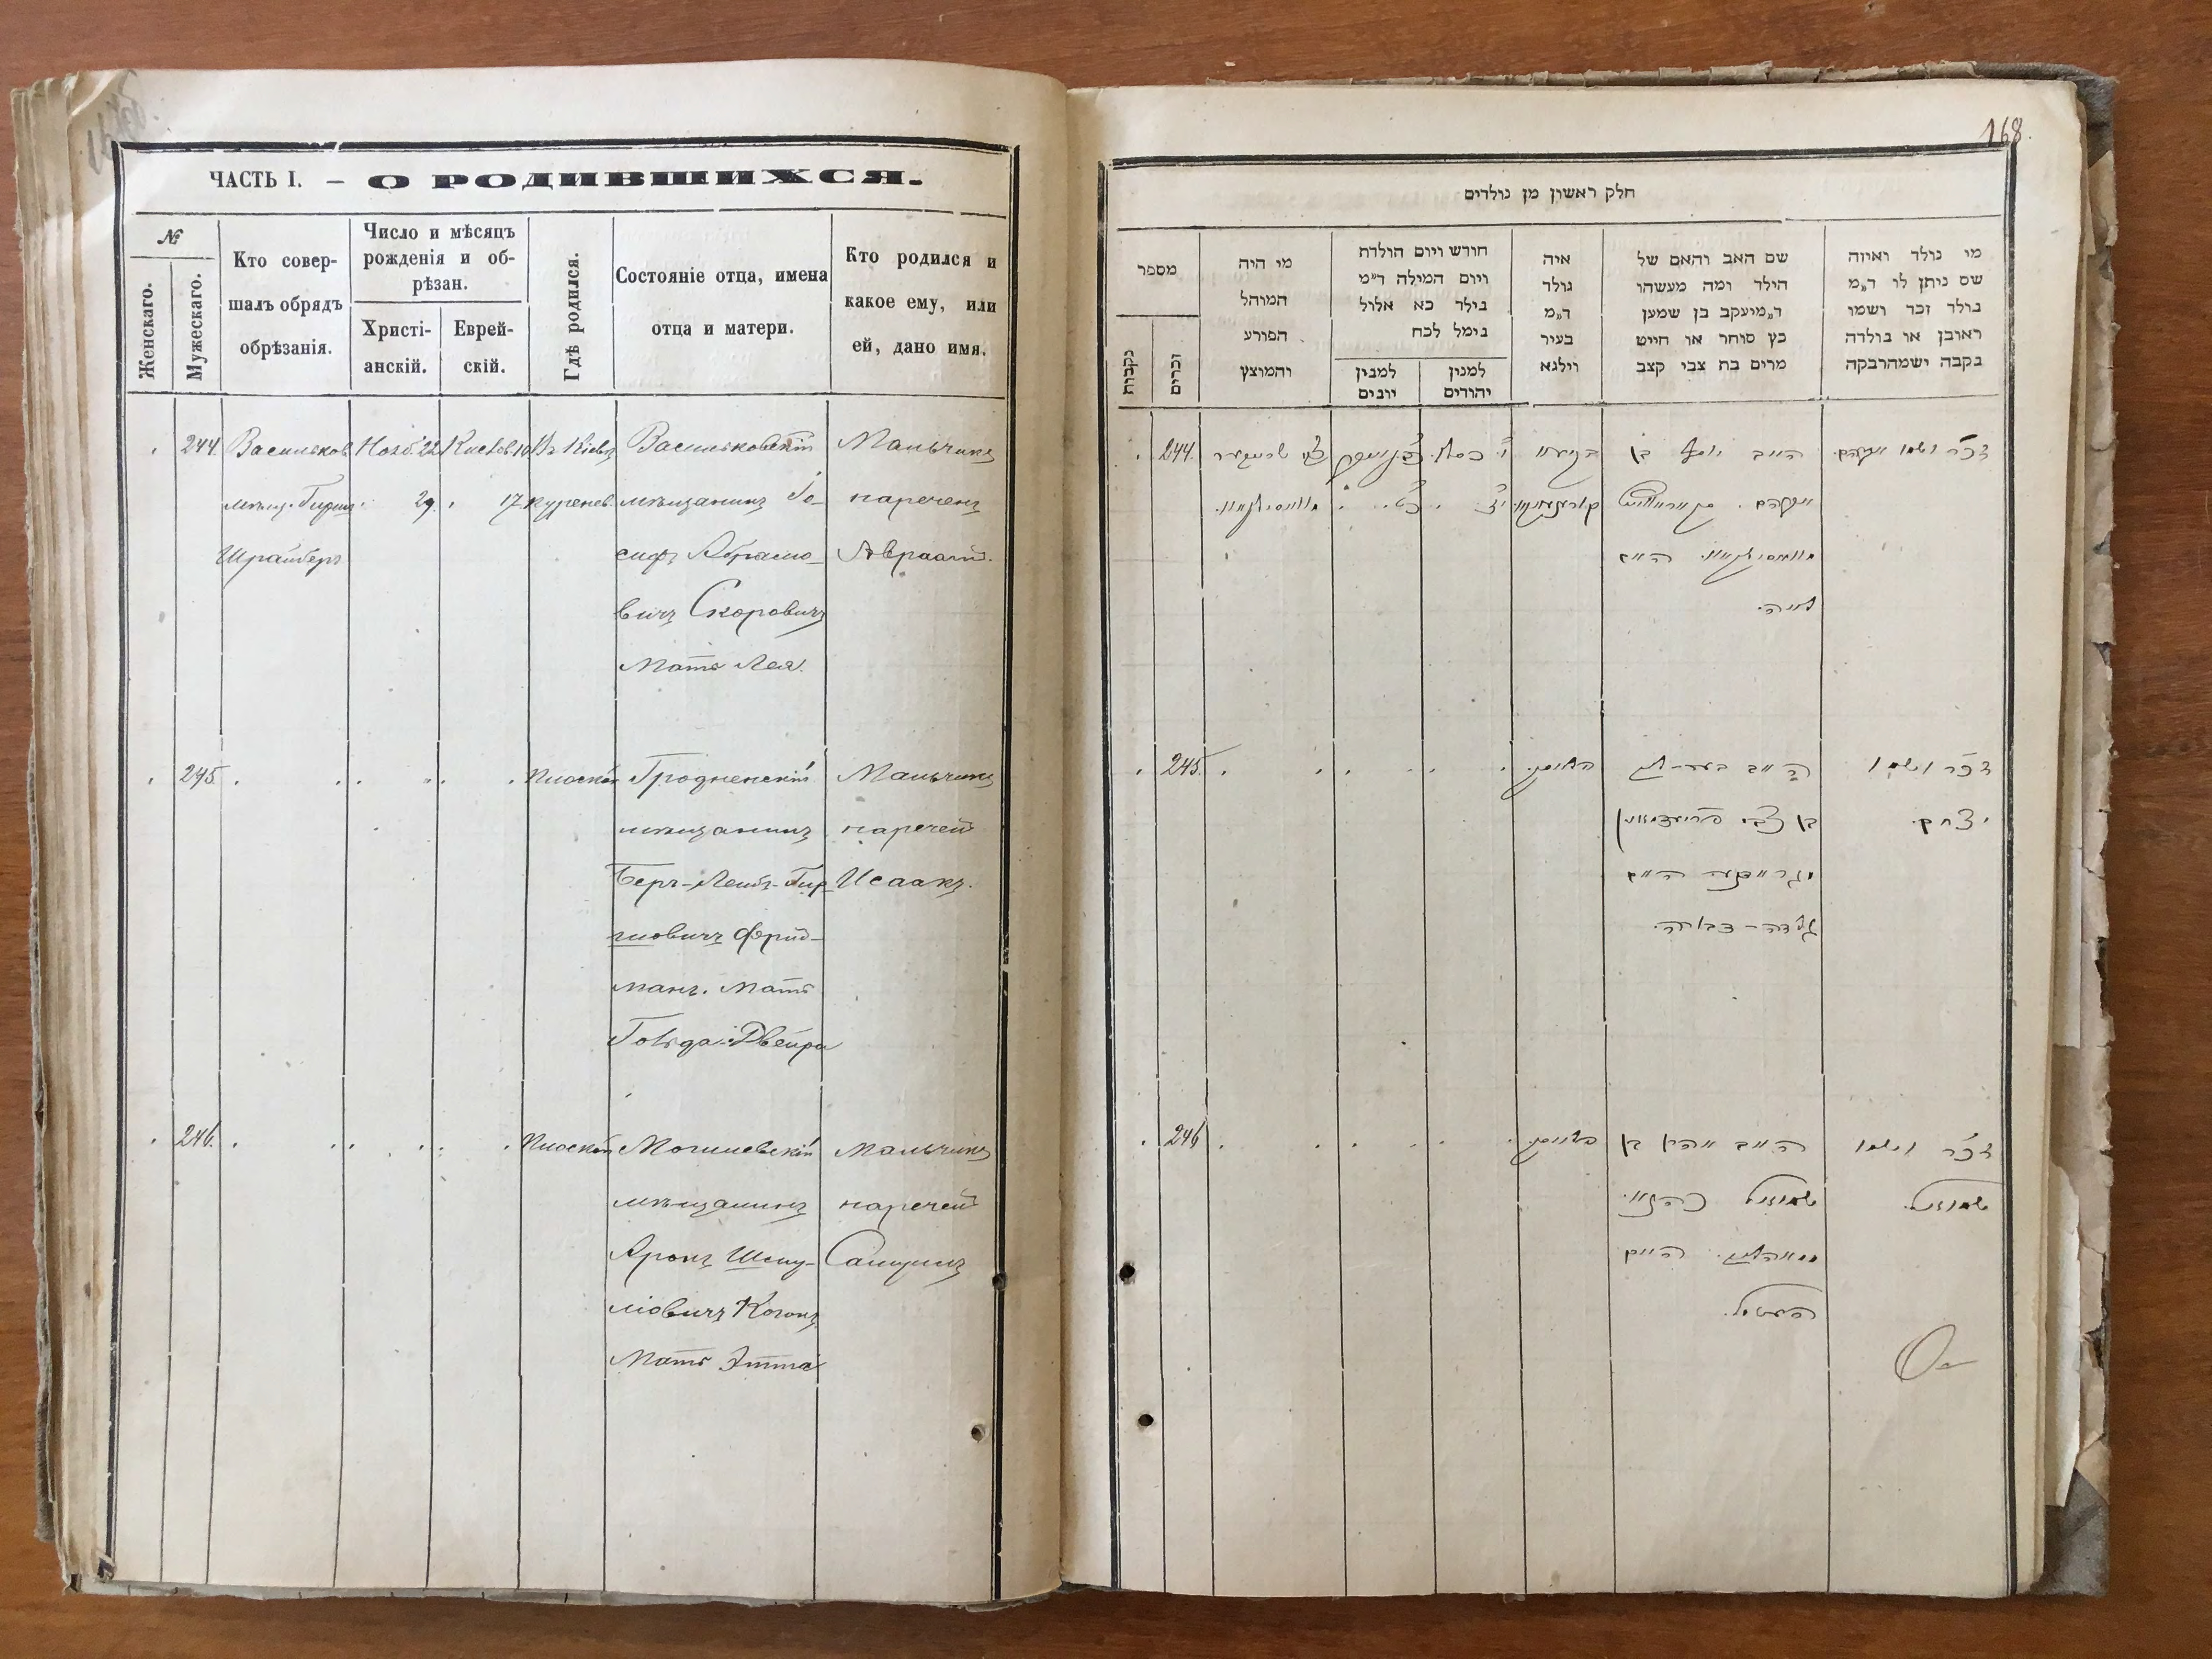 ЧАСТЬ I. – О РОДИВШИХСЯ.
№
Женскаго.
Мужескаго.
Кто совер-
шалъ обрядъ
обрѣзанія.
Число и мѣсяцъ
рожденія и об-
рѣзан.
Христі-
анскій.
Еврей-
скій.
Гдѣ родился.
Состояніе отца, имена
отца и матери.
Кто родился и
какое ему, или
ей, дано имя.
244.
Васильков.
мѣщ. Гирш
Шрайберъ
Нояб. 22
29
Кислев. 10
17
Въ Кіевѣ
Куренев.
Васильковскій
мѣщанинъ Іо-
сифъ Абрамо-
вичъ Скоровичъ
Мать Лея.
Мальчикъ
нареченъ
Авраам.
245
Плоской
Гродненскій
мѣщанинъ
Беръ-Лейб-Гир-
шовичъ Фрид-
манъ. Мать
Гольда-Двейра
Мальчикъ
наречен
Исаакъ.
246.
Плоской
Могилевскій
мѣщанинъ
Аронъ Шму-
ліовичъ Коганъ
Мать Этта
Мальчикъ
наречен
Самуилъ
168.
חלק ראשון מן נולדים
מספר
נקבות
זכרים
מי היה
המוהל
הפורע
והמוצץ
חודש ויום הולדת
ויום המילה ד״מ
נילד כא אלול
נימל לכח
למנין
יונים
למנין
יהודים
איה
נולד
ד״מ
בעיר
וילנא
שם האב והאם של
הילד ומה מעשהו
ד״מ יעקב בן שמען
כץ סוחר או חייט
מרים בת צבי קצב
מי נולד ואיזה
שם ניתן לו ד״מ
נולד זכר ושמו
ראובן או נולדה
נקבה ושמה רבקה
244.
צבי שרייבער
האב יוסף בן
אברהם
האם
לאה.
זכר ושמו אברהם.
245.
האב בער-לייב
בן צבי פריעדמאן
האם
גאלדה-דבורה.
זכר ושמו
יצחק.
246
האב אהרן בן
שמואל כהן
האם
זכר ושמו
שמואל.